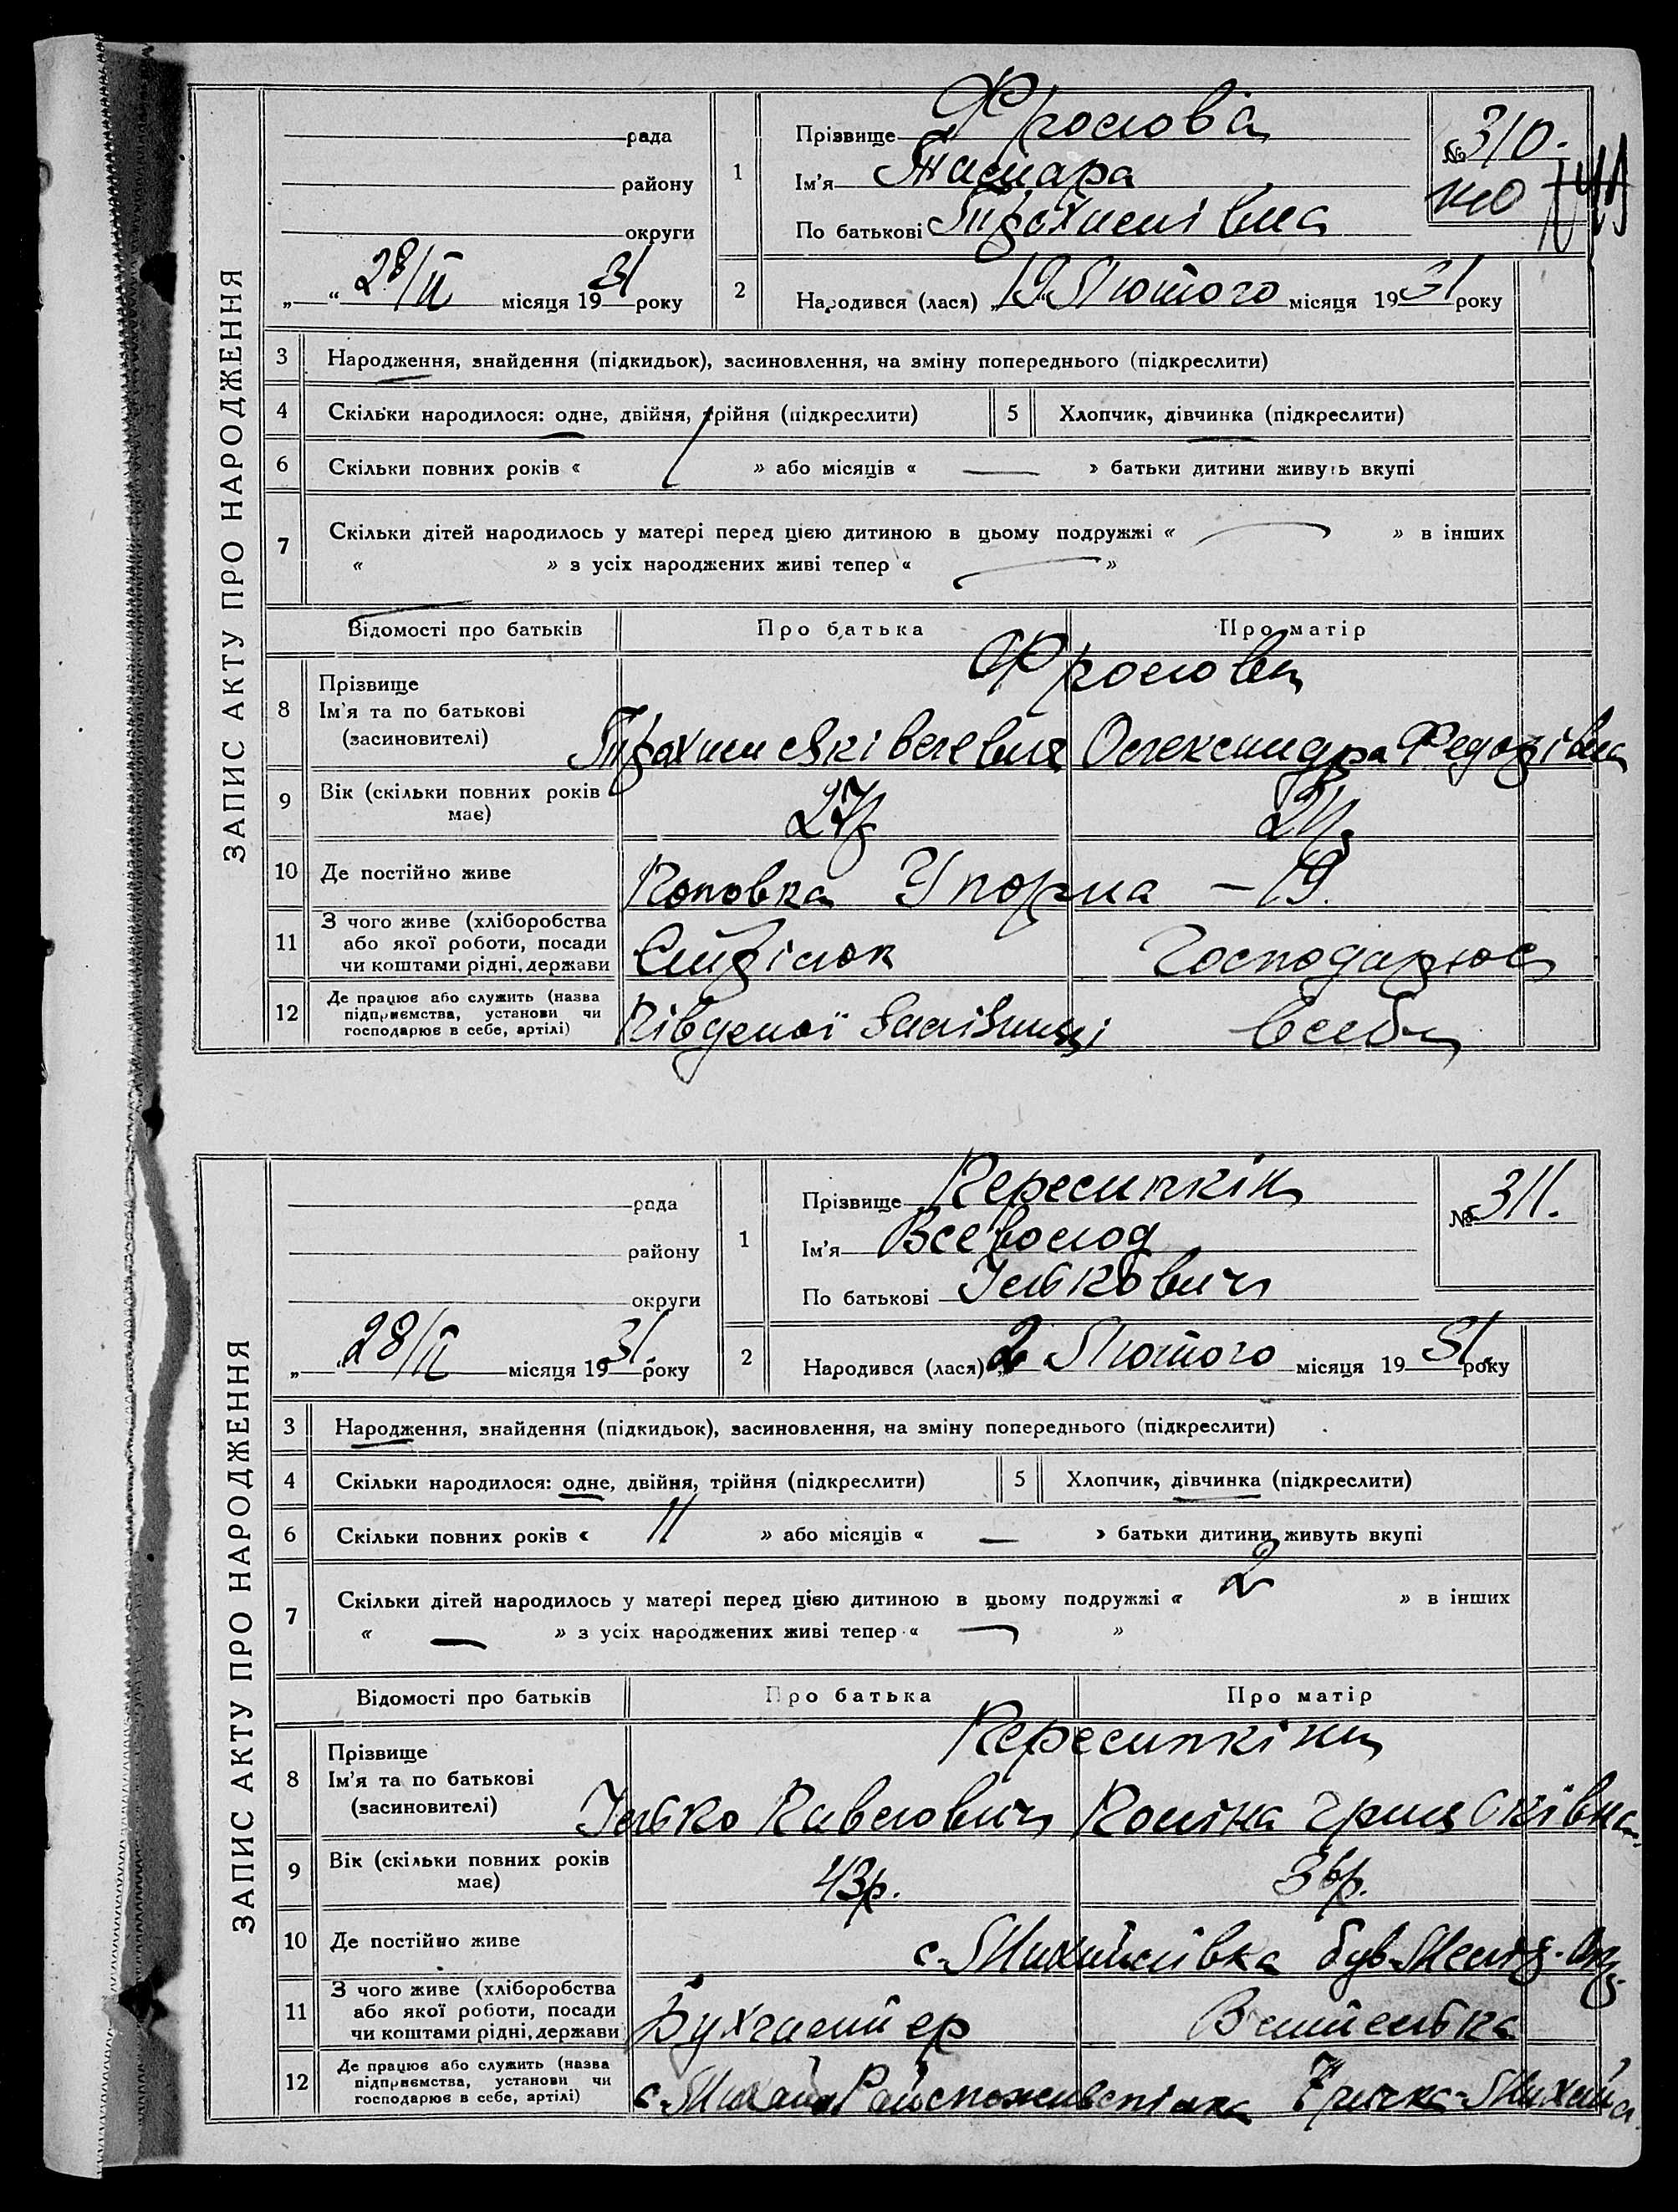 ЗАПИС АКТУ ПРО НАРОДЖЕННЯ
рада
району
округи
„ “ 28/II місяця 1931 року
1
Прізвище Фролова
Ім'я Тамара
По батькові Трохимівна
№ 310.
2
Народився (лася) „19 Лютого місяця 1931 року
3 Народження, знайдення (підкидьок), засиновлення, на зміну попереднього (підкреслити)
4 Скільки народилося: одне, двійня, трійня (підкреслити)
5 Хлопчик, дівчинка (підкреслити)
6 Скільки повних років « 1 » або місяців « — » батьки дитини живуть вкупі
7 Скільки дітей народилось у матері перед цією дитиною в цьому подружжі « — » в інших
« » з усіх народжених живі тепер « — »
Відомості про батьків
Про батька
Про матір
8 Прізвище
Ім'я та по батькові
(засиновителі)
Фролови
Трохим Олександра Федорівна
9 Вік (скільки повних років
має)
27р 21р.
10 Де постійно живе
19.
11 З чого живе (хліборобства
або якої роботи, посади
чи коштами рідні, держави
Стрілок Господарює
12 Де працює або служить (назва
підприємства, установи чи
господарює в себе, артілі)
Південої Залізниці в себе
ЗАПИС АКТУ ПРО НАРОДЖЕННЯ
рада
району
округи
„ “ 28/II місяця 1931. року
1
Прізвище Пересипкін
Ім'я Всеволод
По батькові Ількович
№ 311.
2
Народився (лася) „2 Лютого місяця 1931. року
3 Народження, знайдення (підкидьок), засиновлення, на зміну попереднього (підкреслити)
4 Скільки народилося: одне, двійня, трійня (підкреслити)
5 Хлопчик, дівчинка (підкреслити)
6 Скільки повних років « 11 » або місяців « — » батьки дитини живуть вкупі
7 Скільки дітей народилось у матері перед цією дитиною в цьому подружжі « 2 » в інших
« — » з усіх народжених живі тепер « — »
Відомості про батьків
Про батька
Про матір
8 Прізвище
Ім'я та по батькові
(засиновителі)
Пересипкіни
Ілько Павлович
9 Вік (скільки повних років
має)
43р. 36р.
10 Де постійно живе
с. Михайлівка був. Меліт. Окр.
11 З чого живе (хліборобства
або якої роботи, посади
чи коштами рідні, держави
Бухгалтер Вчителька
12 Де працює або служить (назва
підприємства, установи чи
господарює в себе, артілі)
с. Михайл Райспоживспілка